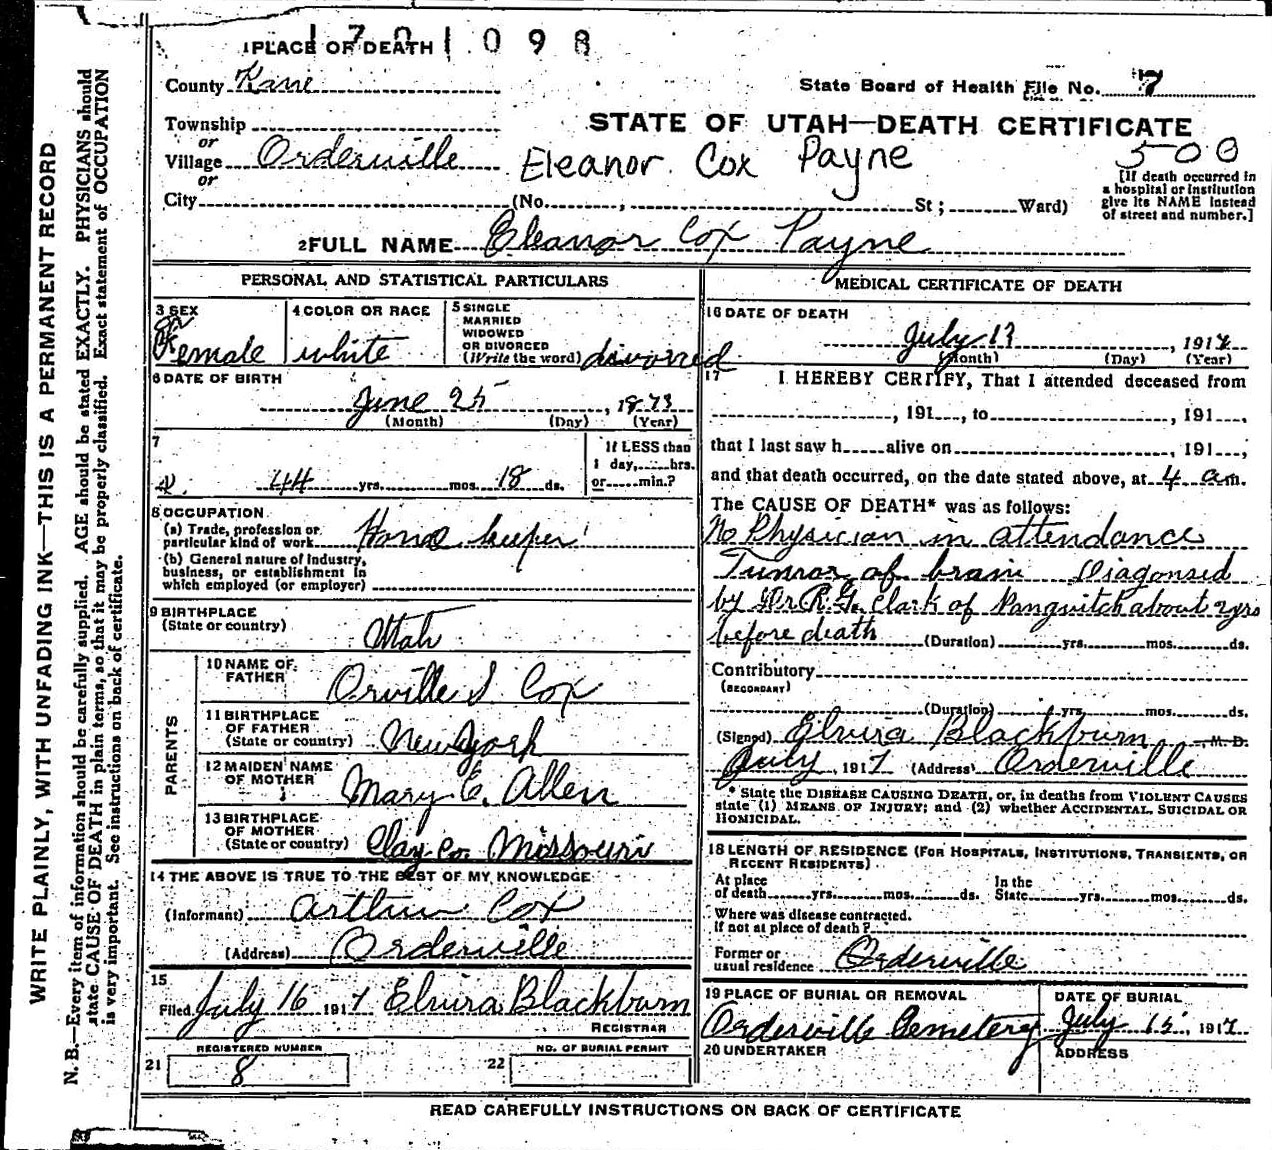 1701098
1 PLACE OF DEATH
County Kane
State Board of Health File No. 7
Township
or
STATE OF UTAH—DEATH CERTIFICATE
Village Orderville
Eleanor Cox Payne
500
or
City
(No. , St ; Ward)
[If death occurred in
a hospital or institution
give its NAME instead
of street and number.]
2 FULL NAME Eleanor Cox Payne
PERSONAL AND STATISTICAL PARTICULARS
3 SEX
Female
4 COLOR OR RACE
white
5 SINGLE
MARRIED
WIDOWED
OR DIVORCED
(Write the word) divorced
6 DATE OF BIRTH
June 25, 1873
(Month) (Day) (Year)
7
44 yrs. mos. 18 ds.
If LESS than
1 day, hrs.
or min.?
8 OCCUPATION
(a) Trade, profession or
particular kind of work House keeper
(b) General nature of industry,
business, or establishment in
which employed (or employer)
9 BIRTHPLACE
(State or country)
Utah
PARENTS
10 NAME OF
FATHER
Orville S. Cox
11 BIRTHPLACE
OF FATHER
(State or country) New York
12 MAIDEN NAME
OF MOTHER
Mary E. Allen
13 BIRTHPLACE
OF MOTHER
(State or country) Clay Co. Missouri
14 THE ABOVE IS TRUE TO THE BEST OF MY KNOWLEDGE
(Informant) Arthur Cox
(Address) Orderville
15
Filed July 16 1917 Elvira Blackburn
REGISTRAR
REGISTERED NUMBER
21 8
NO. OF BURIAL PERMIT
22
MEDICAL CERTIFICATE OF DEATH
16 DATE OF DEATH
July 13, 1917
(Month) (Day) (Year)
17 I HEREBY CERTIFY, That I attended deceased from
, 191 , to , 191 ,
that I last saw h alive on , 191 ,
and that death occurred, on the date stated above, at 4 a.m.
The CAUSE OF DEATH* was as follows:
No Physician in attendance
Tumor of brain Diagonsed
by Dr R. G. Clark of Panguitch about 2 yrs
before death (Duration) yrs. mos. ds.
Contributory
(SECONDARY)
(Duration) yrs. mos. ds.
(Signed) Elvira Blackburn M. D.
July , 1917 (Address) Orderville
* State the DISEASE CAUSING DEATH, or, in deaths from VIOLENT CAUSES
state (1) MEANS OF INJURY; and (2) whether ACCIDENTAL, SUICIDAL OR
HOMICIDAL.
18 LENGTH OF RESIDENCE (FOR HOSPITALS, INSTITUTIONS, TRANSIENTS, OR
RECENT RESIDENTS)
At place
of death yrs. mos. ds.
In the
State yrs. mos. ds.
Where was disease contracted.
If not at place of death ?
Former or
usual residence Orderville
19 PLACE OF BURIAL OR REMOVAL
Orderville Cemetery
DATE OF BURIAL
July 15, 1917
20 UNDERTAKER
ADDRESS
READ CAREFULLY INSTRUCTIONS ON BACK OF CERTIFICATE
WRITE PLAINLY, WITH UNFADING INK—THIS IS A PERMANENT RECORD
N. B.—Every item of information should be carefully supplied. AGE should be stated EXACTLY. PHYSICIANS should
state CAUSE OF DEATH in plain terms, so that it may be properly classified. Exact statement of OCCUPATION
is very important. See instructions on back of certificate.